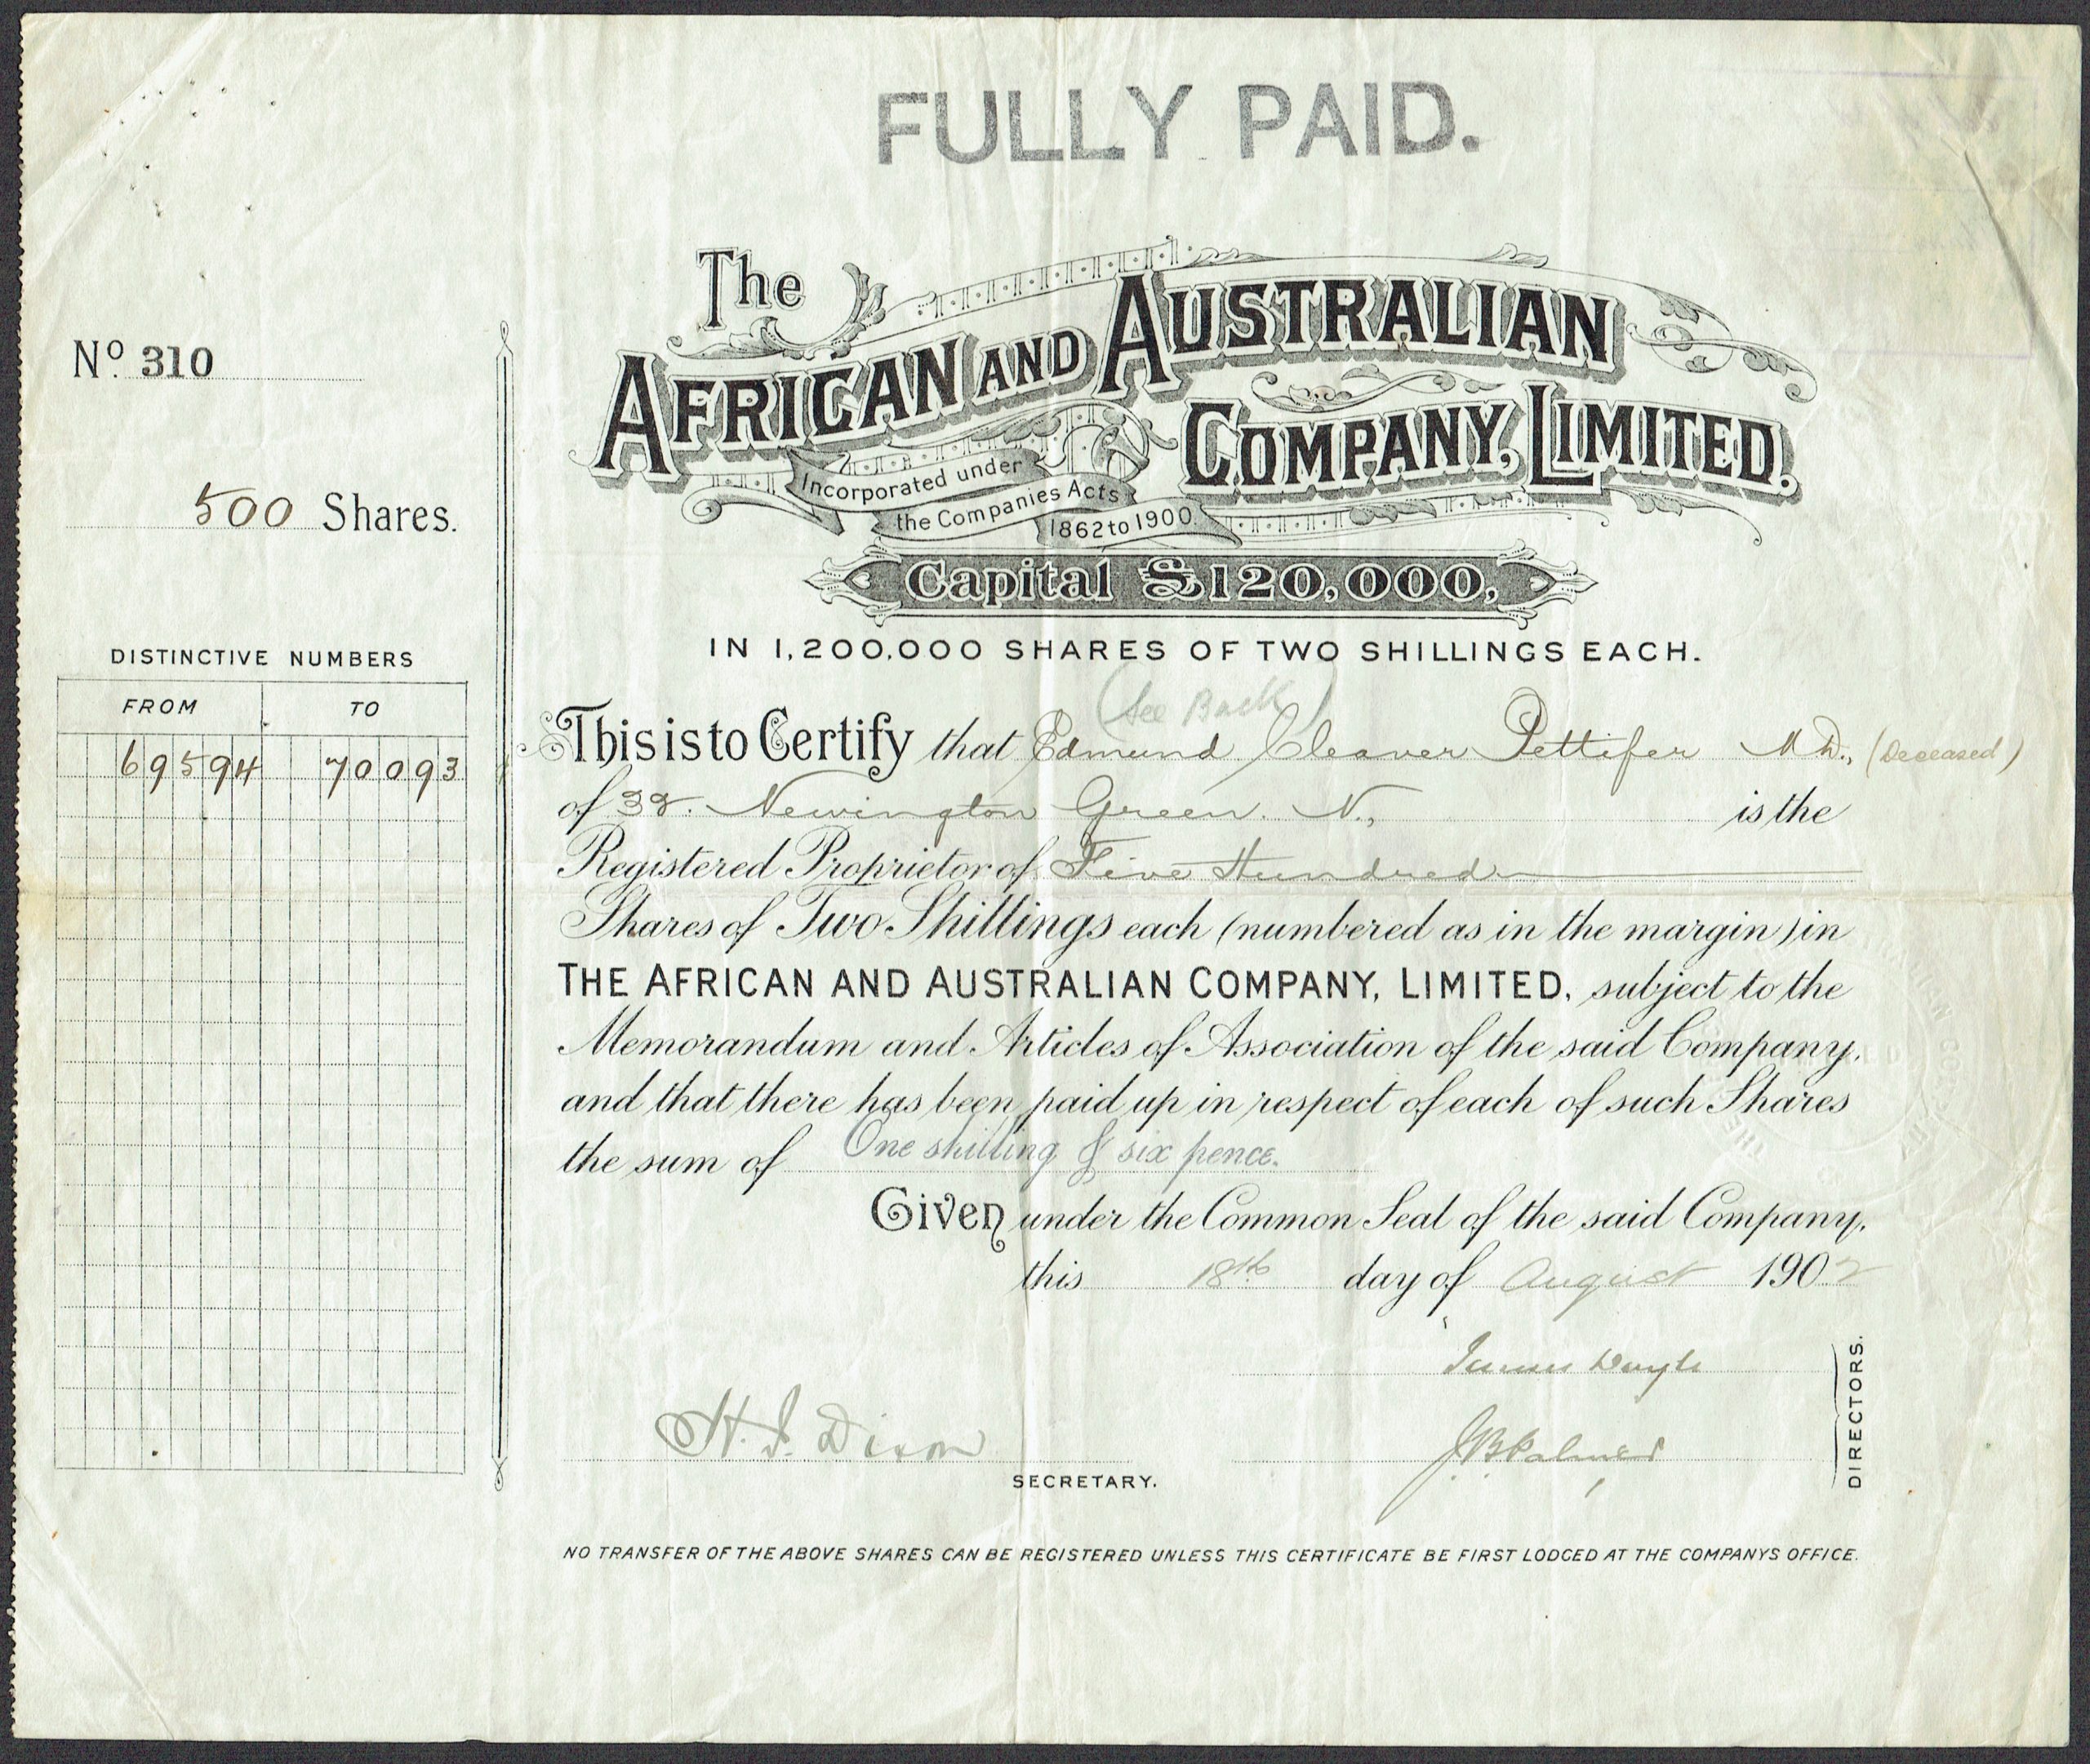 FULLY PAID.
The
AFRICAN AND AUSTRALIAN
COMPANY, LIMITED.
Incorporated under
the Companies Acts
1862 to 1900.
Capital £120,000,
IN 1,200,000 SHARES OF TWO SHILLINGS EACH.
No. 310
500 Shares.
DISTINCTIVE NUMBERS
FROM TO
69594 70093
(See Back)
This is to Certify that Edmund Cleaver Pettifer M.D., (Deceased)
of 32. Newington Green. N., is the
Registered Proprietor of Five Hundred
Shares of Two Shillings each (numbered as in the margin) in
THE AFRICAN AND AUSTRALIAN COMPANY, LIMITED, subject to the
Memorandum and Articles of Association of the said Company,
and that there has been paid up in respect of each of such Shares
the sum of One shilling & six pence.
Given under the Common Seal of the said Company,
this 18th day of August 1902
James Doyle
H. J. Dixon
J B Palmer
SECRETARY.
DIRECTORS.
NO TRANSFER OF THE ABOVE SHARES CAN BE REGISTERED UNLESS THIS CERTIFICATE BE FIRST LODGED AT THE COMPANYS OFFICE.